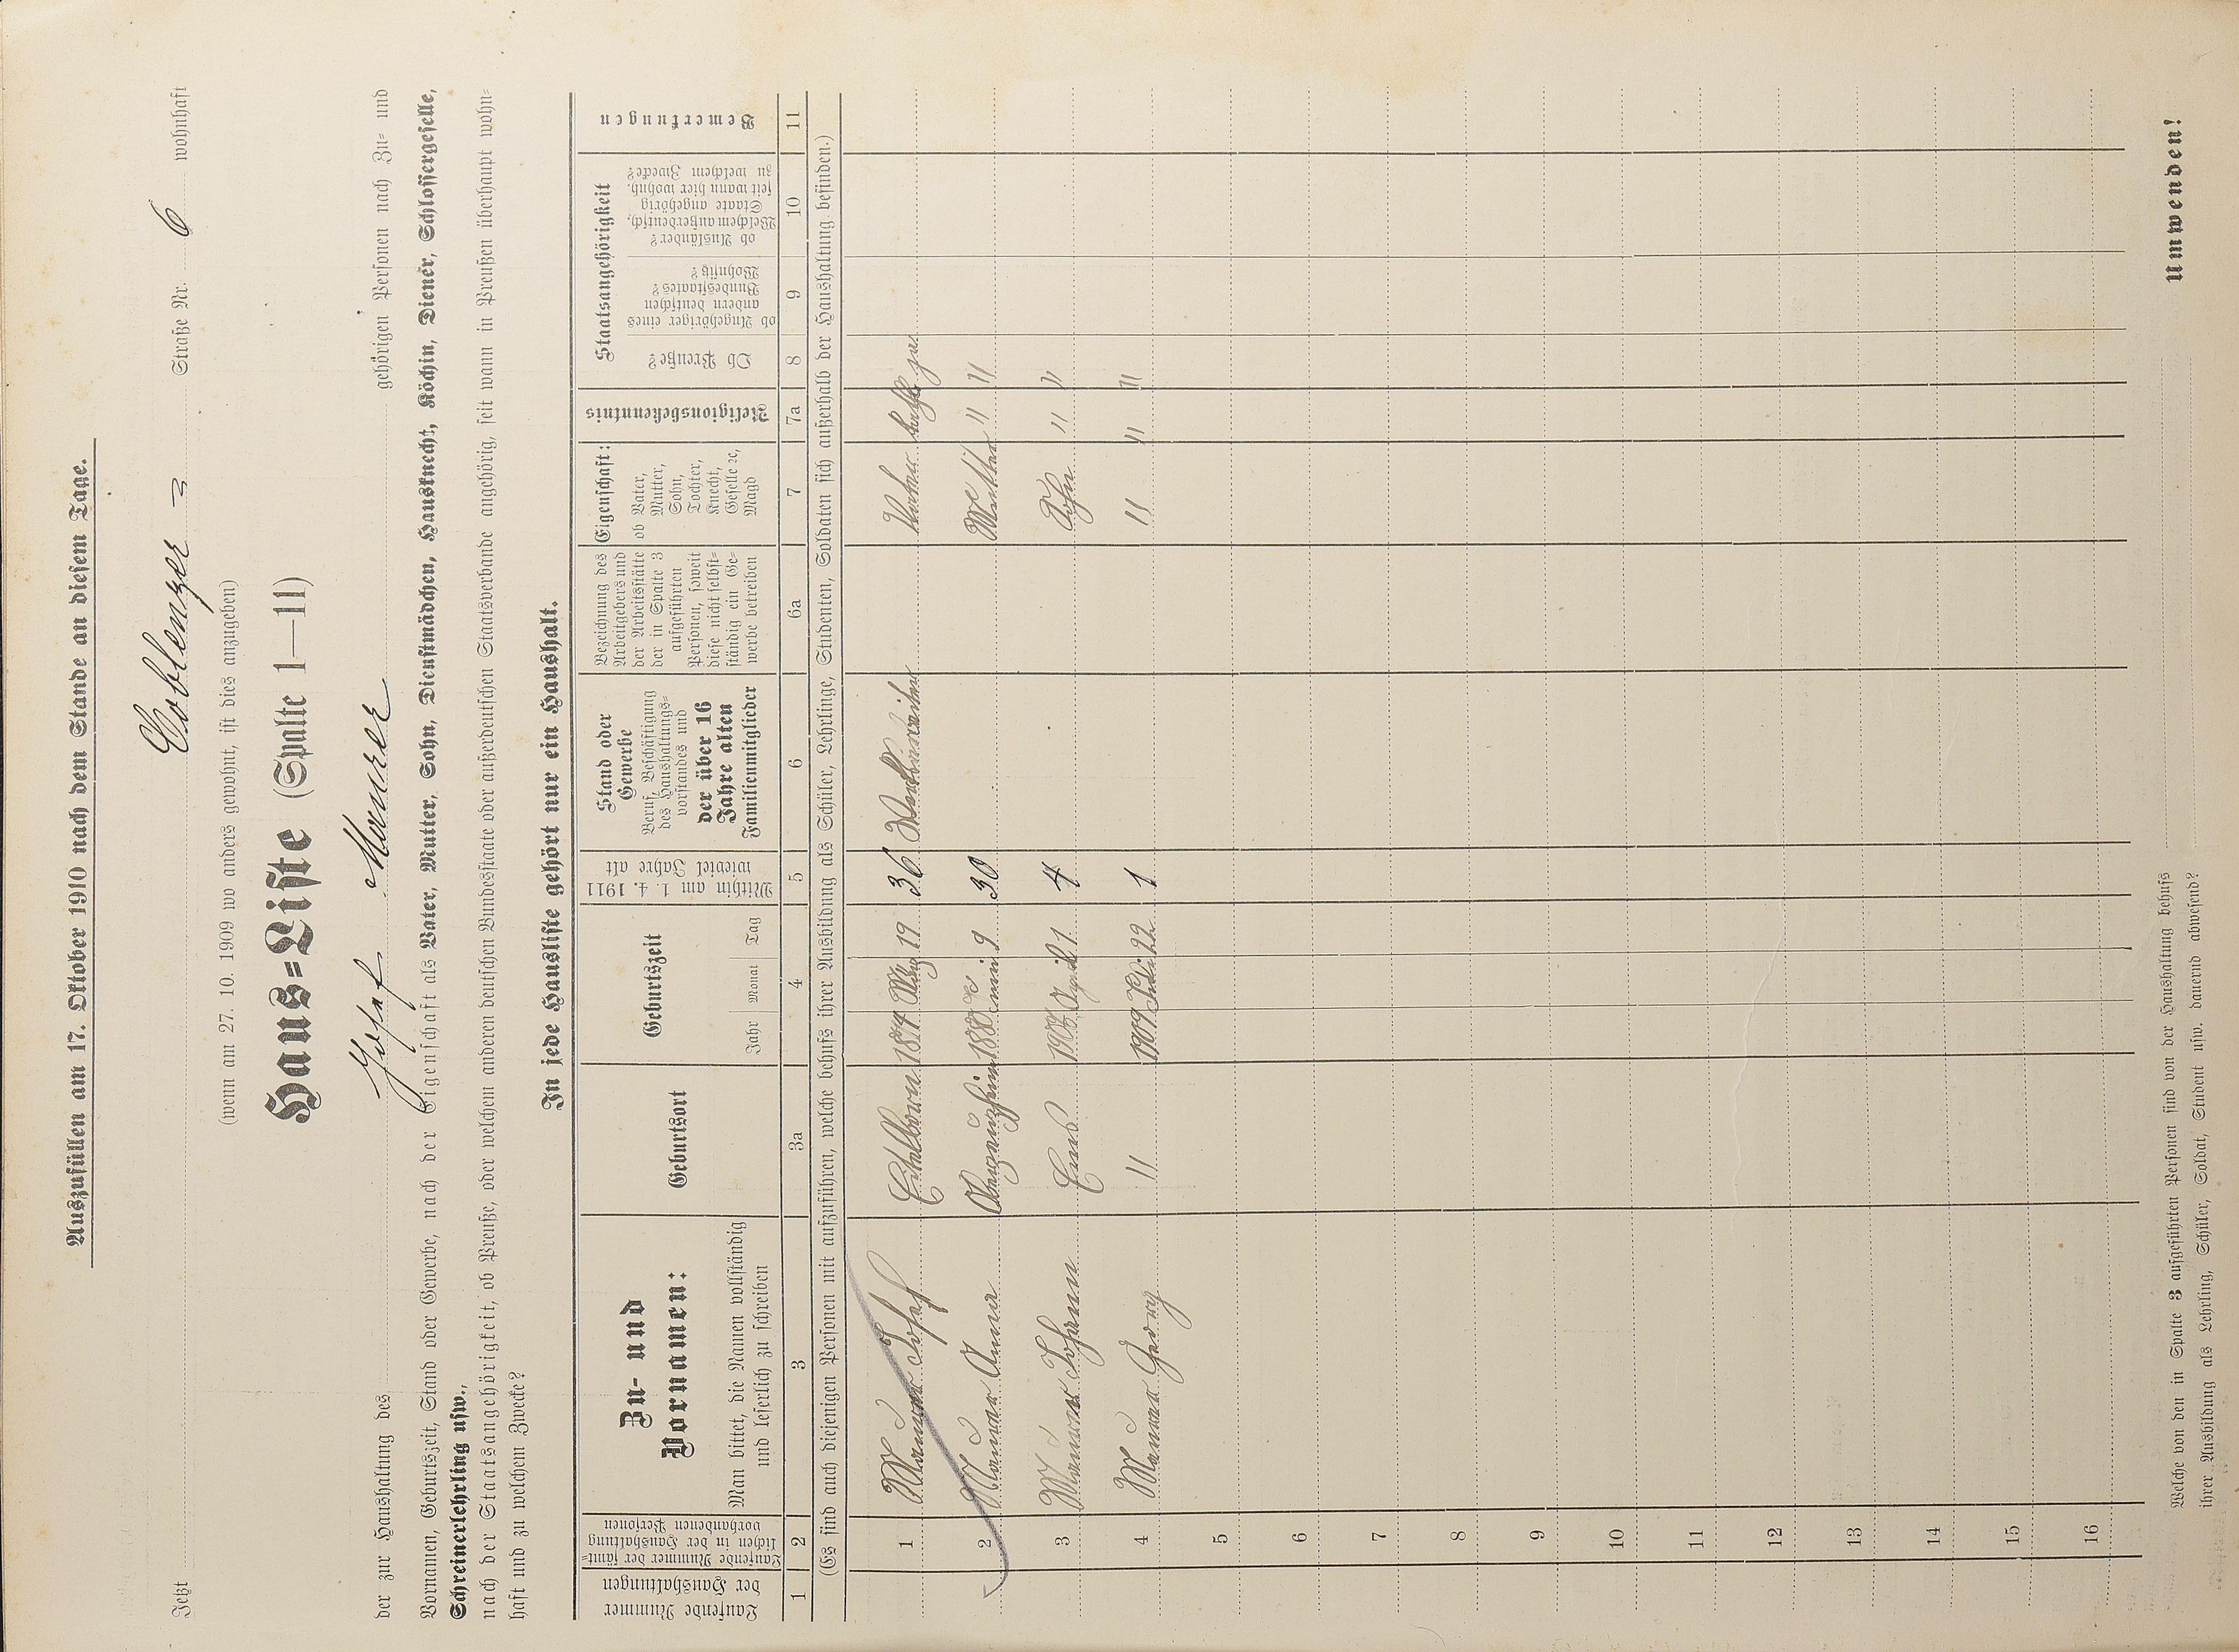 Auszufüllen am 17. Oktober 1910 nach dem Stande an diesem Tage.
Jetzt Coblenzer Straße Nr. 6 wohnhaft
(wenn am 27. 10. 1909 wo anders gewohnt, ist dies anzugeben)
Haus=Liste (Spalte 1—11)
der zur Haushaltung des Josef Maurer gehörigen Personen nach Zu= und
Vornamen, Geburtszeit, Stand oder Gewerbe, nach der Eigenschaft als Vater, Mutter, Sohn, Dienstmädchen, Hausknecht, Köchin, Diener, Schlossergeselle,
Schreinerlehrling usw.,
nach der Staatsangehörigkeit, ob Preuße, oder welchem anderen deutschen Bundesstaate oder außerdeutschen Staatsverbande angehörig, seit wann in Preußen überhaupt wohn=
haft und zu welchem Zwecke?
In jede Hausliste gehört nur ein Haushalt.
Laufende Nummer
der Haushaltungen
Laufende Nummer der sämt=
lichen in der Haushaltung
vorhandenen Personen
Zu- und
Vornamen:
Man bittet, die Namen vollständig
und leserlich zu schreiben
Geburtsort
Geburtszeit
Jahr Monat Tag
Mithin am 1. 4. 1911
wieviel Jahre alt
Stand oder
Gewerbe
Beruf, Beschäftigung
des Haushaltungs=
vorstandes und
der über 16
Jahre alten
Familienmitglieder
Bezeichnung des
Arbeitgebers und
der Arbeitsstätte
der in Spalte 3
aufgeführten
Personen, soweit
diese nicht selbst=
ständig ein Ge=
werbe betreiben
Eigenschaft:
ob Vater,
Mutter,
Sohn,
Tochter,
Knecht,
Geselle ec,
Magd
Religionsbekenntnis
Staatsangehörigkeit
Ob Preuße?
ob Angehöriger eines
andern deutschen
Bundesstaates?
Wohnsitz?
ob Ausländer?
Welchem außerdeutsch.
Staate angehörig
seit wann hier wohnh.
zu welchem Zwecke?
Bemerkungen
1 2 3 3a 4 5 6 6a 7 7a 8 9 10 11
(Es sind auch diejenigen Personen mit aufzuführen, welche behufs ihrer Ausbildung als Schüler, Lehrlinge, Studenten, Soldaten sich außerhalb der Haushaltung befinden.)
1 Maurer Josef Eitelborn 1874 19 36 Vater kath ja
2 Maurer Anna 1880 9 30 Mutter " "
3 Maurer Johann Ems April 1 4 Sohn " "
4 Maurer Georg " 1909 Juli 22 1 " " "
5
6
7
8
9
10
11
12
13
14
15
16
Welche von den in Spalte 3 aufgeführten Personen sind von der Haushaltung behufs
ihrer Ausbildung als Lehrling, Schüler, Soldat, Student usw. dauernd abwesend?
Umwenden!